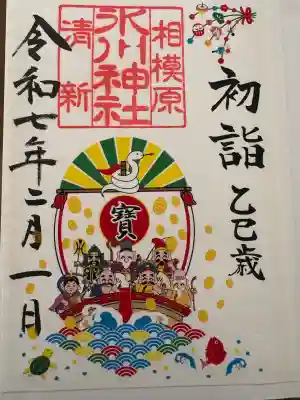 初詣 乙巳歳
相模原
氷川神社
清新
寳
令和七年二月一日